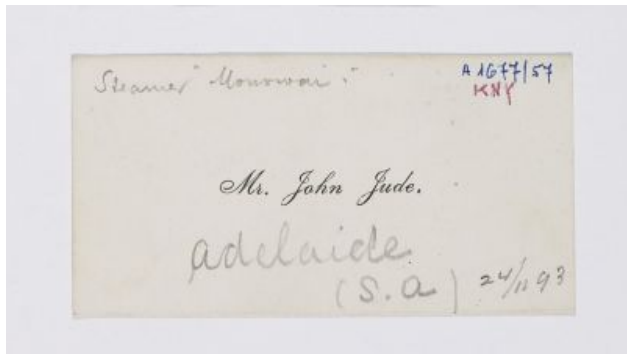 Steamer "Monowai."
A 1677/57
KNY
Mr. John Jude.
adelaide
(S.a)
24/11 93